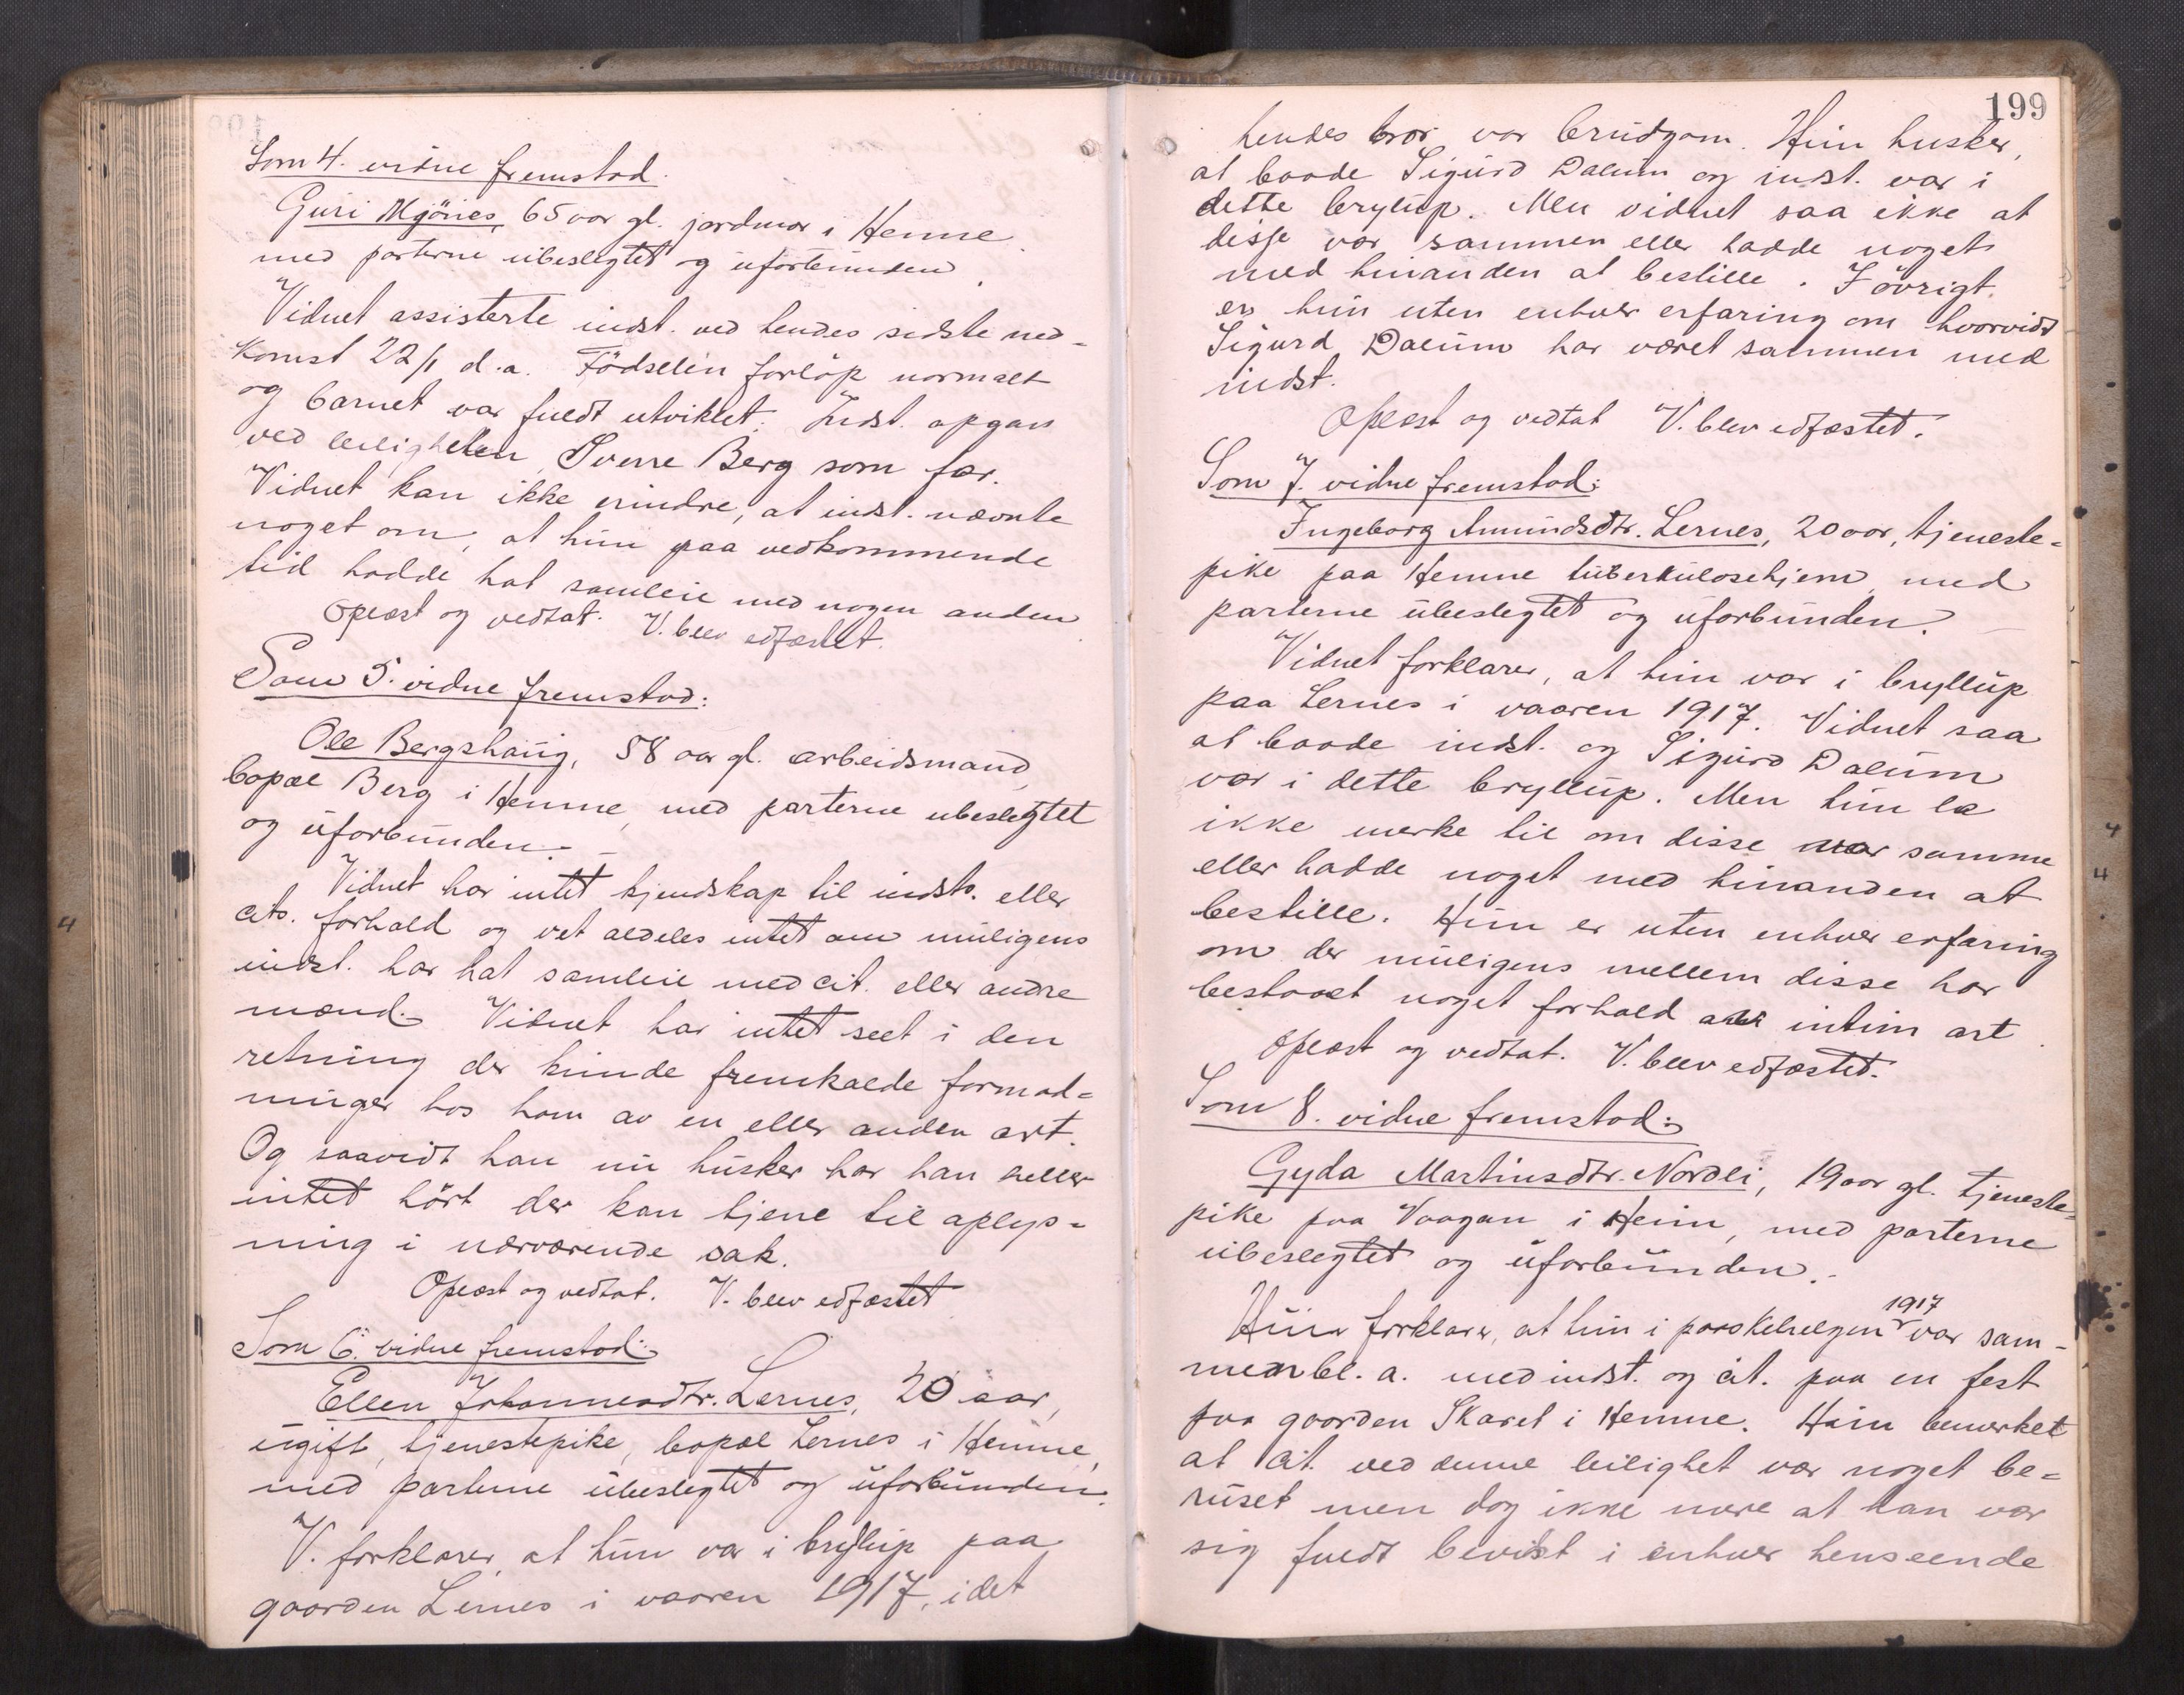 Som 4. vidne fremstod.
Guri Mjönes, 65 aar gl. jordmor i Hemne
med parterne ubeslegtet og uforbunden.
Vidnet assisterte indst. ved hendes sidste ned-
komst 22/1 d.a. Födselen forlöp normalt
og barnet var fuldt utviklet. Indst. opgav
ved leiligheten Sverre Berg som far.
Vidnet kan ikke erindre, at indst. nævnte
noget om, at hun paa vedkommende
tid hadde hat samleie med nogen anden.
Oplæst og vedtat. V. blev edfæstet.
Som 5. vidne fremstod:
Ole Bergshaug, 58 aar gl. arbeidsmand,
bopæl Berg i Hemne, med parterne ubeslegtet
og uforbunden. –
Vidnet har intet kjendskap til indsts. eller
cits. forhold og vet aldeles intet om muligens
indst. har hat samleie med cit. eller andre
mænd. Vidnet har intet seet i den
retning der kunde fremkalde formod-
ninger hos ham av en eller anden art.
Og saavidt han nu husker har han heller
intet hört der kan tjene til oplys-
ning i nærværende sak.
Oplæst og vedtat. V. blev edfæstet
Som 6. vidne fremstod:
Ellen Johannesdtr. Lernes, 20 aar,
ugift, tjenestepike, bopæl Lernes i Hemne,
med parterne ubeslegtet og uforbunden.
V. forklarer, at hun var i bryllup paa
gaarden Lernes i vaaren 1917, idet
199
hendes bror var brudgom. Hun husker,
at baade Sigurd Dalum og indst. var i
dette bryllup. Men vidnet saa ikke at
disse var sammen eller hadde noget
med hinanden at bestille. I övrigt
er hun uten enhver erfaring om hvorvidt
Sigurd Dalum har været sammen med
indst.
Oplæst og vedtat V. blev edfæstet.
Som 7. vidne fremstod:
Ingeborg Amundsdtr. Lernes, 20 aar, tjeneste-
pike paa Hemne tuberkulosehjem, med
parterne ubeslegtet og uforbunden. –
Vidnet forklarer, at hun var i bryllup
paa Lernes i vaaren 1917. Vidnet saa
at baade indst. og Sigurd Dalum
var i dette bryllup. Men hun la
ikke merke til om disse var samme
eller hadde noget med hinanden at
bestille. Hun er uten enhver erfaring
om der muligens mellem disse har
bestaaet noget forhold av intim art.
Oplæst og vedtat. V. blev edfæstet.
Som 8. vidne fremstod:
Gyda Martinsdtr. Nordli, 19 aar gl. tjeneste-
pike paa Vaagan i Heim, med parterne
ubeslegtet og uforbunden. –
1917
Hun forklarer, at hun i paaskehelgen var sam-
men bl. a. med indst. og cit. paa en fest
paa gaarden Skaret i Hemne. Hun bemerket
at cit. ved denne leilighet var noget be-
ruset men dog ikke mere at han var
sig fuldt bevidst i enhver henseende